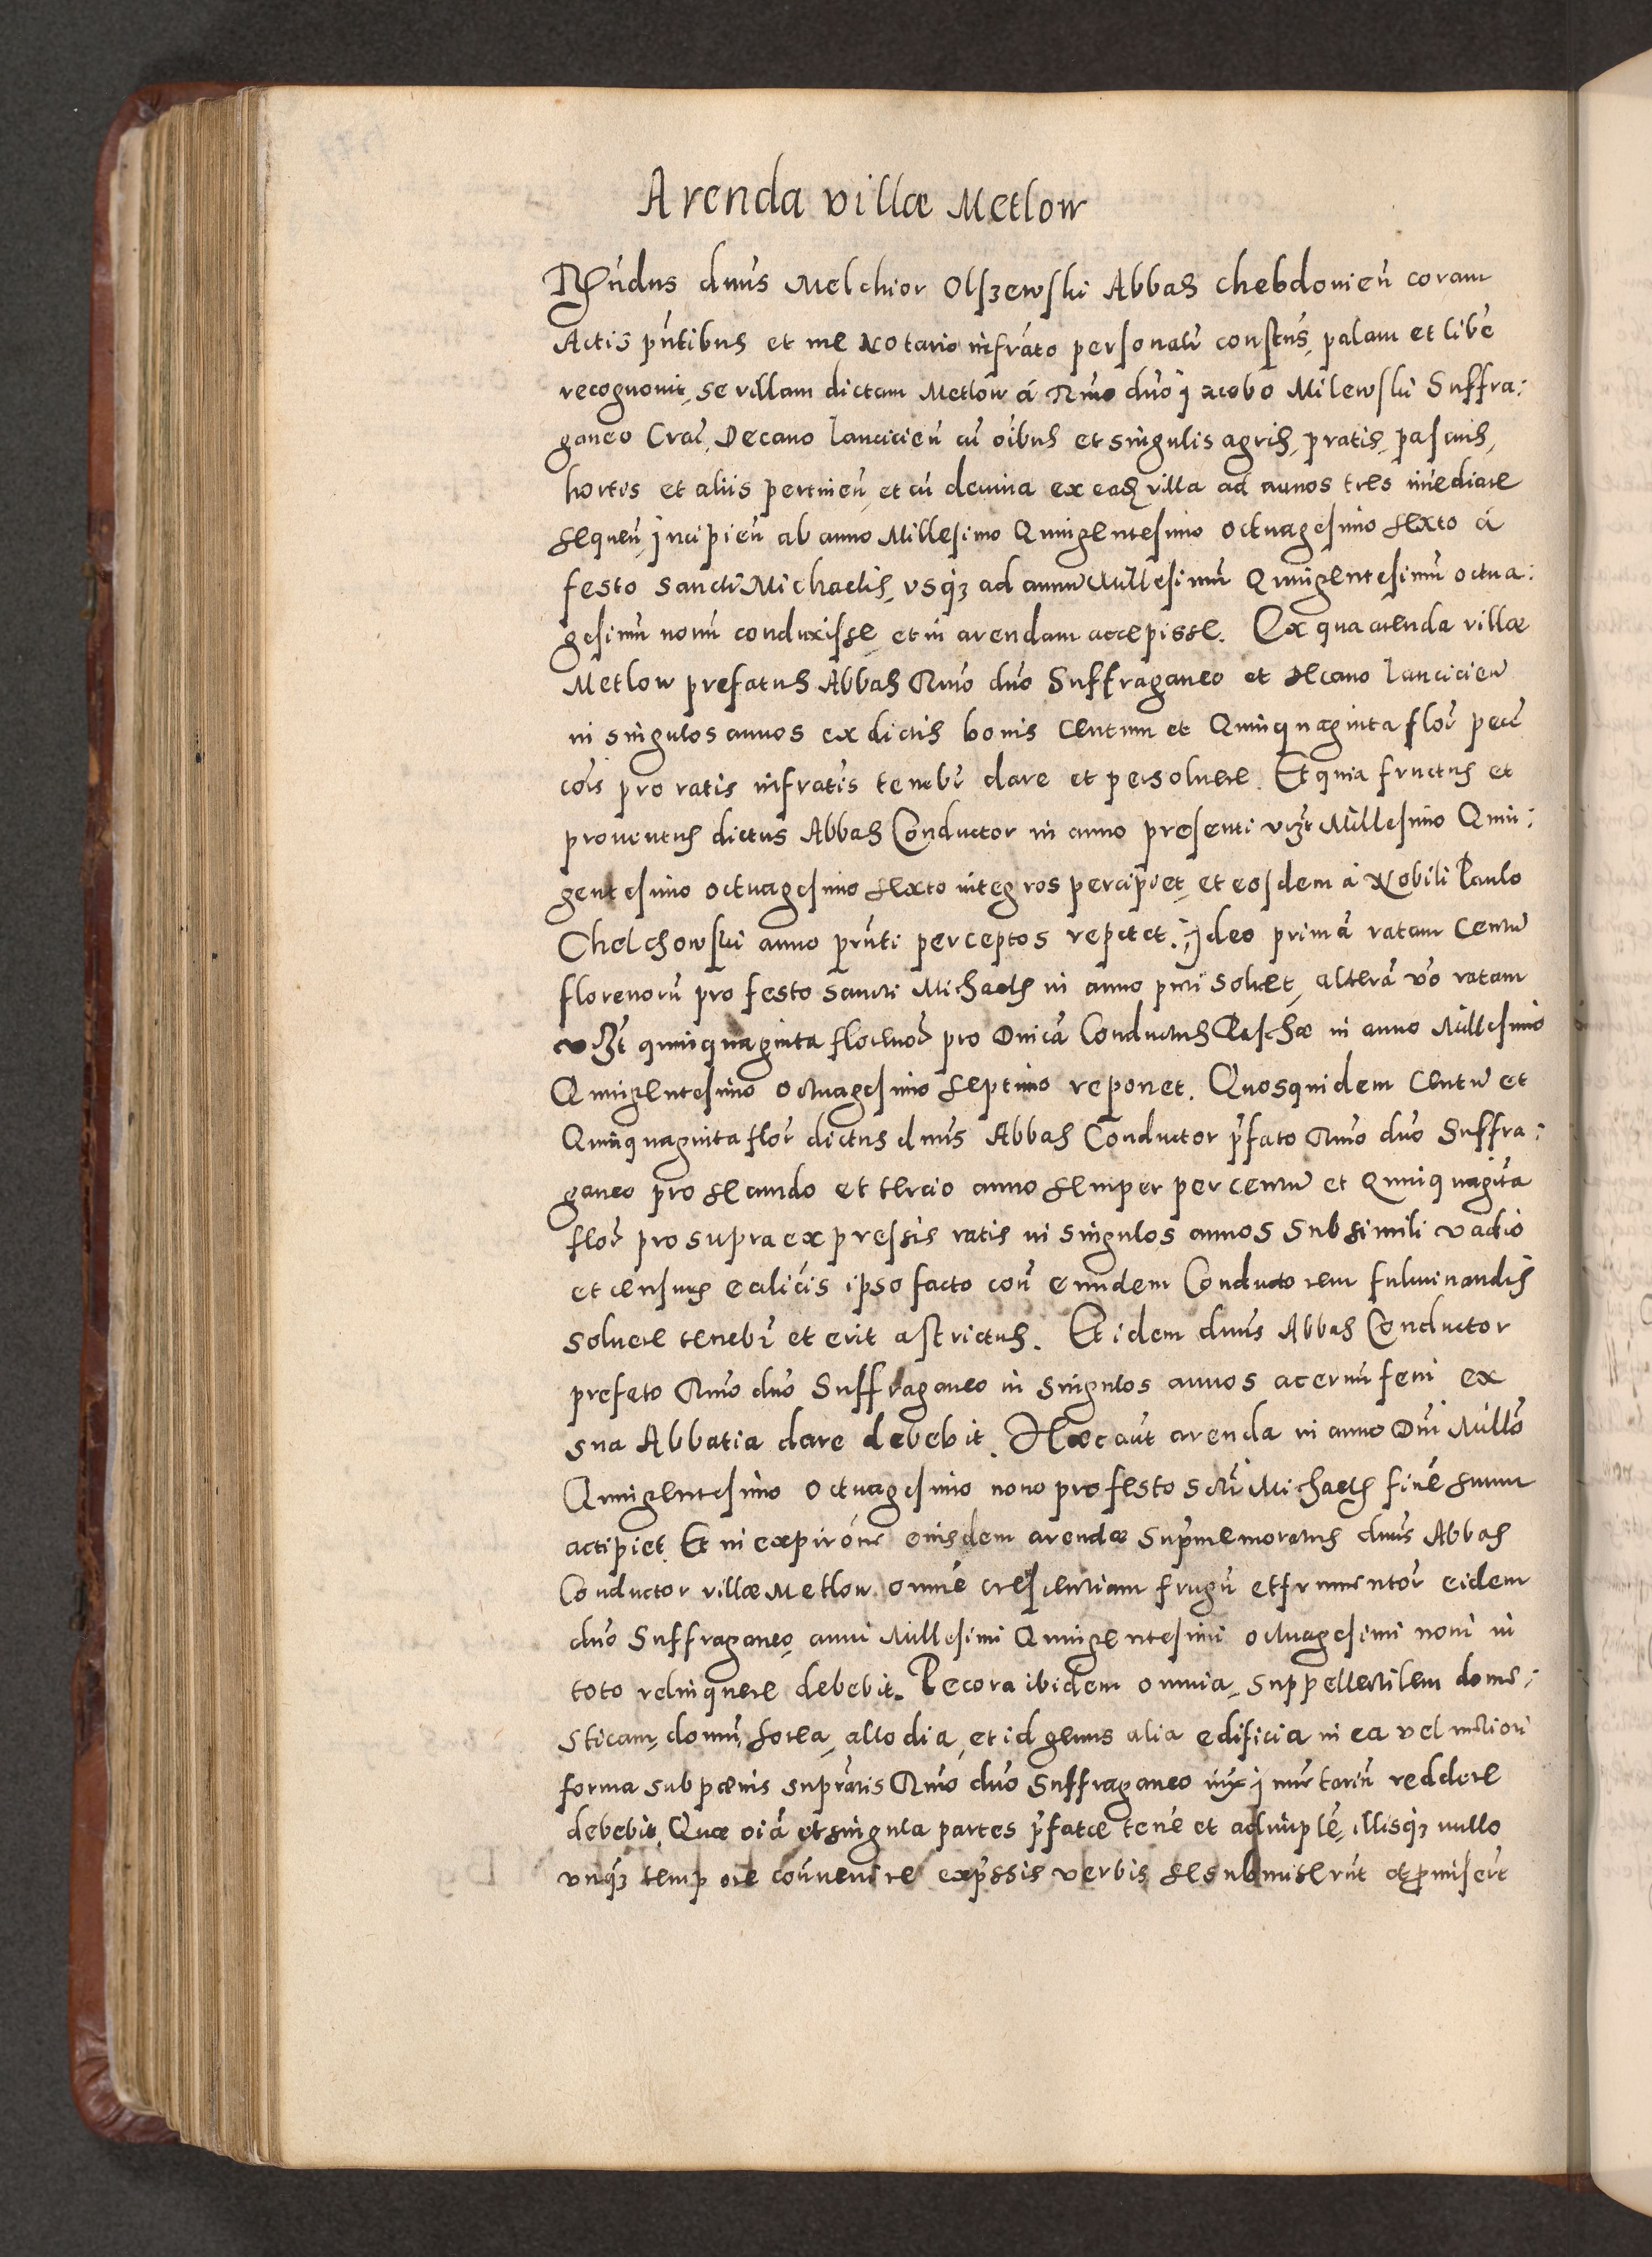 Arenda villæ Metlow
Rñdus dnus Melchior Olszewski Abbas Chebdovień coram
Actis pñtibus et me Notario infrãto personalr constus, palam et libe
recognovit, se villam dictam Metlow á Rmo dño Jacobo Milewski Suffra:
ganeo Crac̃, Decano Lancicień cũ oĩbus et singulis agris, pratis, pascuis,
hortis et aliis pertinen̄, et cũ decima ex eadẽ villa ad annos tres im̃ediate
sequeñ, Incipieñ ab anno Millesimo Quingentesimo octuagesimo sexto á
festo sancti Michaelis, vsq3 ad annũ Millesimũ Quingentesimũ octua:
gesimũ nonũ conduxisse, et in arendam accepisse. Ex qua arenda villæ
Metlow prefatus Abbas Rmo dño Suffraganeo et Decano Lancicień
in singulos annos ex dictis bonis Centum et Quinquaginta flor̃ pecũ
cõis pro ratis infrãtis tenebr̃ dare et persoluere. Et quia fructus et
proventus dictus Abbas Conductor in anno presenti vizt Millesimo Quin:
gentesimo octuagesimo sexto integros percipiet, et eosdem á Nobili Paulo
Chelchowski anno prñti perceptos repetet. Ideo primã ratam Centũ
florenorũ pro festo sancti Michaelis in anno pñti soluet, alterã võ ratam
vizt quinquaginta florenor̃ pro Dnicã Conductus Paschæ in anno Millesimo
Quingentesimo octuagesimo septimo reponet. Quosquidem Centũ et
Quinquaginta flor̃ dictus dnus Abbas Conductor p̃fato Rmo dño Suffra:
ganeo pro secundo et tercio anno semper per centũ et Quinquagĩta
flor̃ pro supra expressis ratis in singulos annos sub simili vadio
et censuris ecclicis ipso facto coñ eundem Conductorem fulminandis
soluere tenebr̃ et erit astrictus. Et idem dnus Abbas Conductor
prefato Rmo dño Suffraganeo in singulos annos acervũ feni ex
sua Abbatia dare debebit. Hæc aũt arenda in anno Dñi Millõ
Quingentesimo octuagesimo nono pro festo scti Michaelis finẽ suum
accipiet. Et in expirõne eiusdem arendæ supr̃memoratus dnus Abbas
Conductor villæ Metlow. omnẽ crescentiam frugũ et frumentor̃ eidem
dño Suffraganeo, anni Millesimi Quingentesimi octuagesimi noni in
toto relinquere debebit. Pecora ibidem omnia, suppellectilem dome:
sticam, domũ, horea, allodia, et id genus alia edificia in ea vel meliori
forma sub pænis suprãtis Rmo dño Suffraganeo iux Inventariũ reddere
debebit. Quæ oĩa et singula partes p̃fatæ tenẽ et adimplẽ, illisq3 nullo
vnq3 tempore cõnvenire exp̃ssis verbis se submiserũt et promiserũt